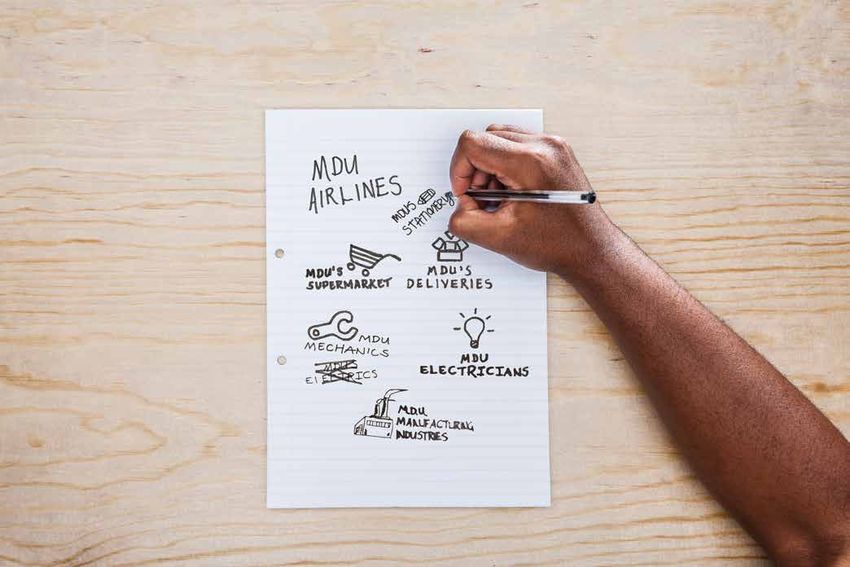 MDU
AIRLINES
MDU'S
STATIONERY
MDU'S
SUPERMARKET
MDU'S
DELIVERIES
MDU
MECHANICS
MDU'S
ELECTRICS
MDU
ELECTRICIANS
MDU
MANUFACTURING
INDUSTRIES